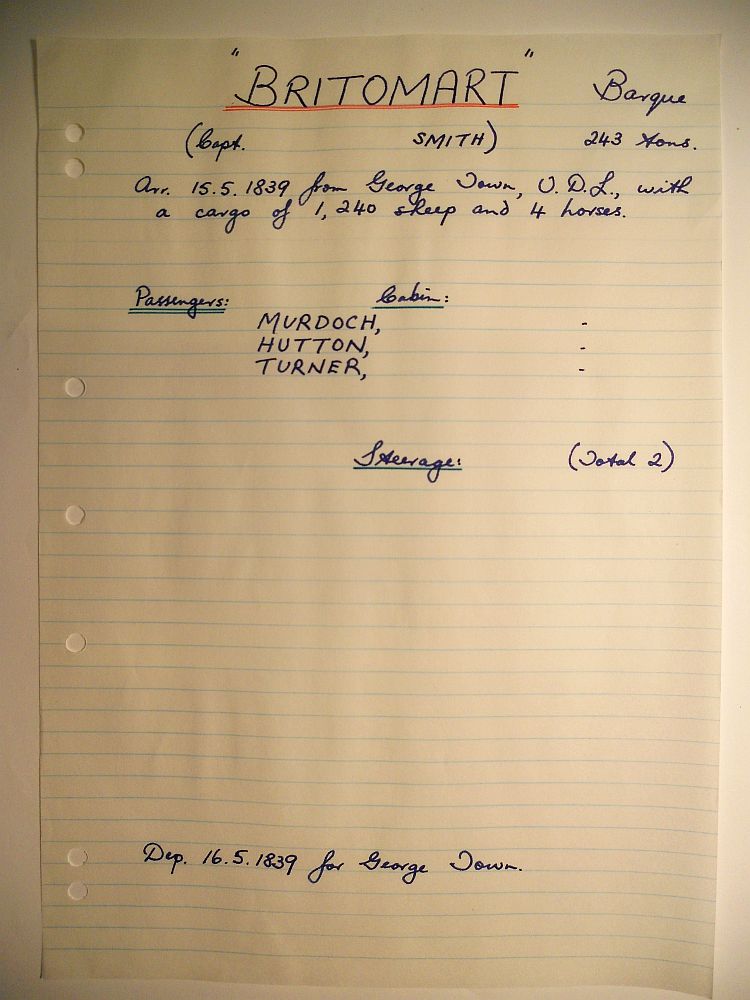 "BRITOMART" Barque
(Capt. SMITH) 243 tons.
Arr. 15.5.1839 from George Town, V.D.L., with
a cargo of 1,240 sheep and 4 horses.
Passengers: Cabin:
MURDOCH, -
HUTTON, -
TURNER, -
Steerage: (Total 2)
Dep. 16.5.1839 for George Town.